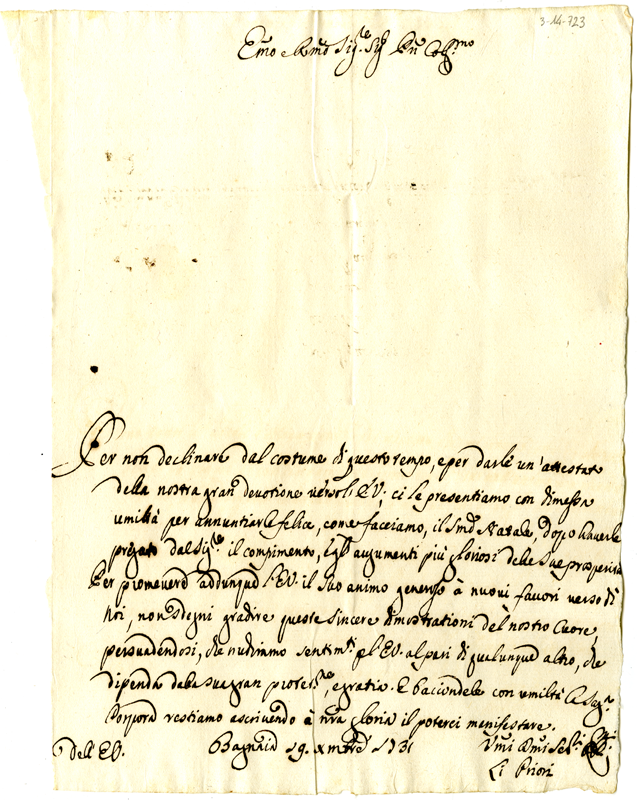 3-14-723
Emo e Rmo Sig.re Sig. Pn Col.mo
Per non declinare dal costume di questo tempo, e per darle un'attestato
della nostra gran devotione verso l'EV; ci le presentiamo con dimessa
umiltà per annuntiarle felice, come facciamo, il Smo Natale, doppo haverle
pregato dal Sig.re il compimento, e gl'augumenti più gloriosi delle Sue prosperità
Per promovere addunque l'EV. il suo animo generoso à nuovi favori verso di
Noi, non sdegni gradire queste sincere dimostrationi del nostro Cuore,
persuadendosi, che nudriamo sentim.ti p l'EV. al pari di qualunque altro, che
dipenda dalla sua gran protet.ne, e gratia. E baciandole con umiltà la Sag.
Porpora restiamo ascrivendo à nra gloria il poterci manifestare.
Dell'EV. Bagnaia 19. Xmbre 1731 Umi Dmi Ser.ri
Li Priori